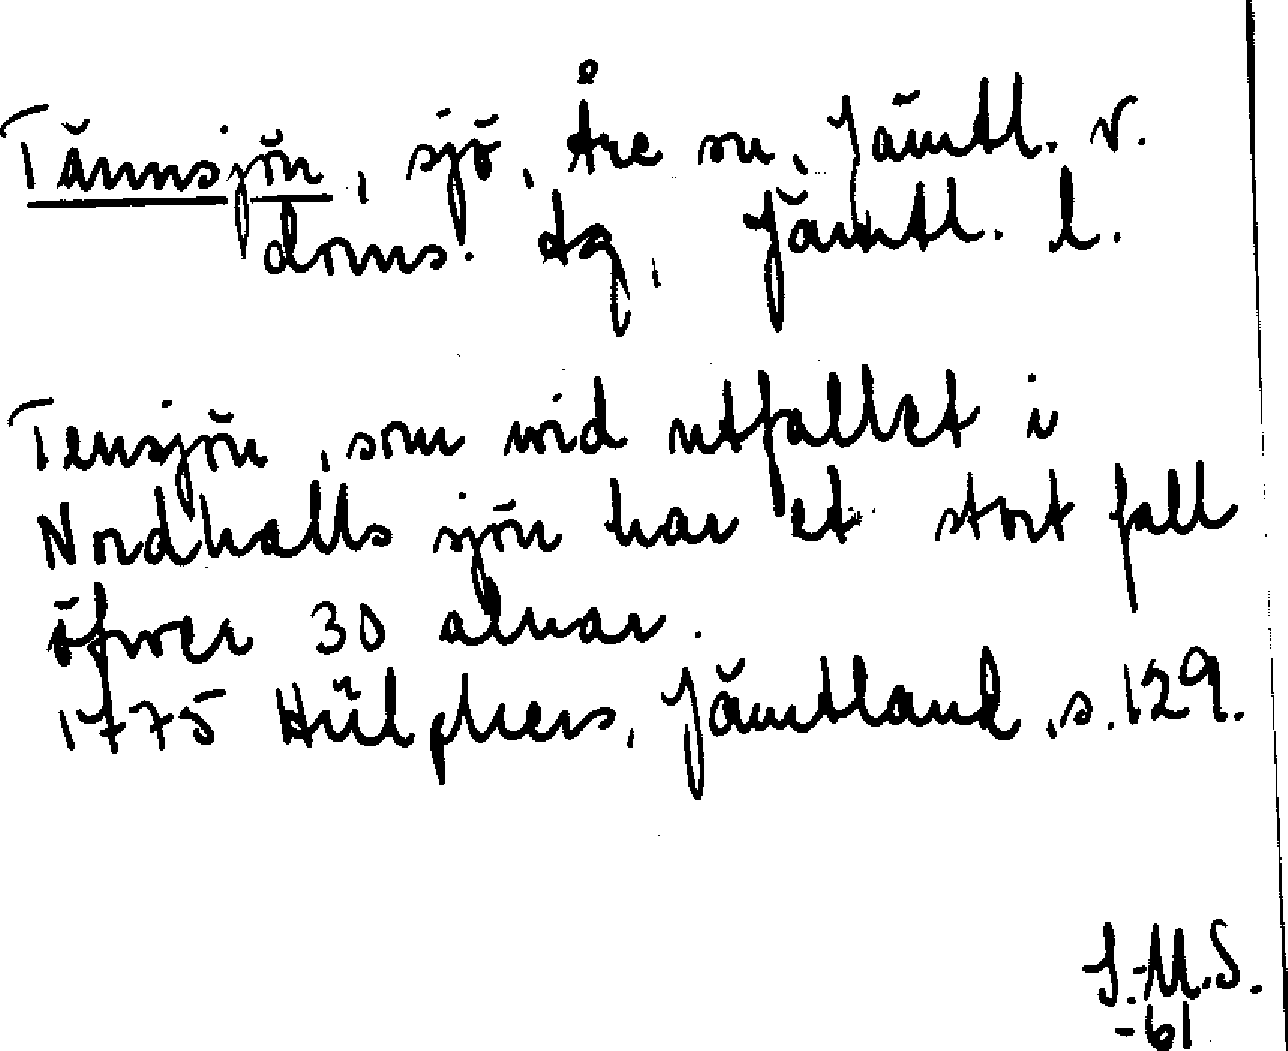 Tännsjön, sjö, Åre sn, Jämtl. v.
doms. tg, Jämtl. l.
Tensjön, som wid utfallet i
Nordhalls sjön har et stort fall
öfwer 30 alnar.
1775 Hülphers, Jämtland, s. 129.
I.M.S.
-61